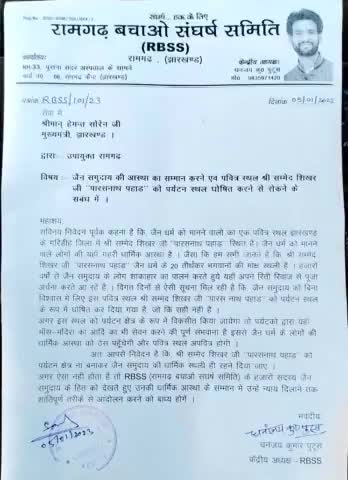 संघर्ष ...हक के लिए
रामगढ़ बचाओ संघर्ष समिति
(RBSS)
रामगढ़ , (झारखण्ड)
कार्यालय:
म0न0-33, पुराना सदर अस्पताल के सामने
वार्ड नं0 रामगढ़ कैन्ट (झारखण्ड)
केन्द्रीय अध्यक्ष:
धनंजय कुमार पुटूस
मो0
पत्रांक RBSS/101/23
दिनांक 05/01/2023
सेवा में
श्रीमान् हेमन्त सोरेन जी
मुख्यमंत्री, झारखण्ड ।
द्वाराः- उपायुक्त रामगढ़
विषय :- जैन समुदाय की आस्था का सम्मान करने एवं पवित्र स्थल श्री सम्मेद शिखर
जी "पारसनाथ पहाड़" को पर्यटन स्थल घोषित करने से रोकने के
संबध में ।
महाशय,
सविनय निवेदन पूर्वक कहना है कि, जैन धर्म को मानने वालो का एक पवित्र स्थल झारखण्ड
के गिरिडीह जिला में श्री सम्मेद शिखर जी "पारसनाथ पहाड़" स्थित है। जैन धर्म को मानने
वाले लोगों की यहाँ गहरी धार्मिक आस्था है । जैसा कि हम सभी जानते है कि श्री सम्मेद
शिखर जी "पारसनाथ पहाड़" जैन धर्म के 20 तीर्थंकर भगवानों की मोक्ष स्थली है । हजारों
वर्षों से जैन समुदाय के लोग शाकाहार का पालन करते हुये यहाँ अपना रिती रिवाज से पूजा
अर्चना करते आ रहे है । विगत दिनों से ऐसी सूचना मिल रही है कि, जैन समुदाय को बिना
विश्वास में लिए इस पवित्र स्थल श्री सम्मेद शिखर जी "पारस नाथ पहाड़" को पर्यटन स्थल
के रूप में घोषित कर दिया गया है जो कि सही नही है ।
अगर इस स्थल को पर्यटन क्षेत्र के रूप में विकसीत किया जायेगा तो पर्यटकों द्वारा यहाँ
माँस-मदिरा का आदि का भी सेवन करने की पूर्ण संभावना है इससे जैन धर्म के लोगों की
धार्मिक आस्था को ठेस पहुँचेगी और पवित्र स्थल अपवित्र होगी ।
अतः आपसे निवेदन है कि, श्री सम्मेद शिखर जी "पारसनाथ पहाड़" को
पर्यटन क्षेत्र ना बनाकर जैन समुदाय की धार्मिक स्थली ही रहने दिया जाए ।
अगर ऐसा नही होता है तो RBSS (रामगढ़ बचाओ संघर्ष समिति) के हजारों सदस्य जैन
समुदाय के हित को देखते हुए उनकी धार्मिक आस्था के सम्मान में उन्हे न्याय दिलाने तक
शांतिपूर्ण तरीके से आन्दोलन करने को बाध्य होंगे ।
भवदीय
धनंजय कुमार पुटूस
धनंजय कुमार पुटूस
केंद्रीय अध्यक्ष -RBSS
05/01/2023